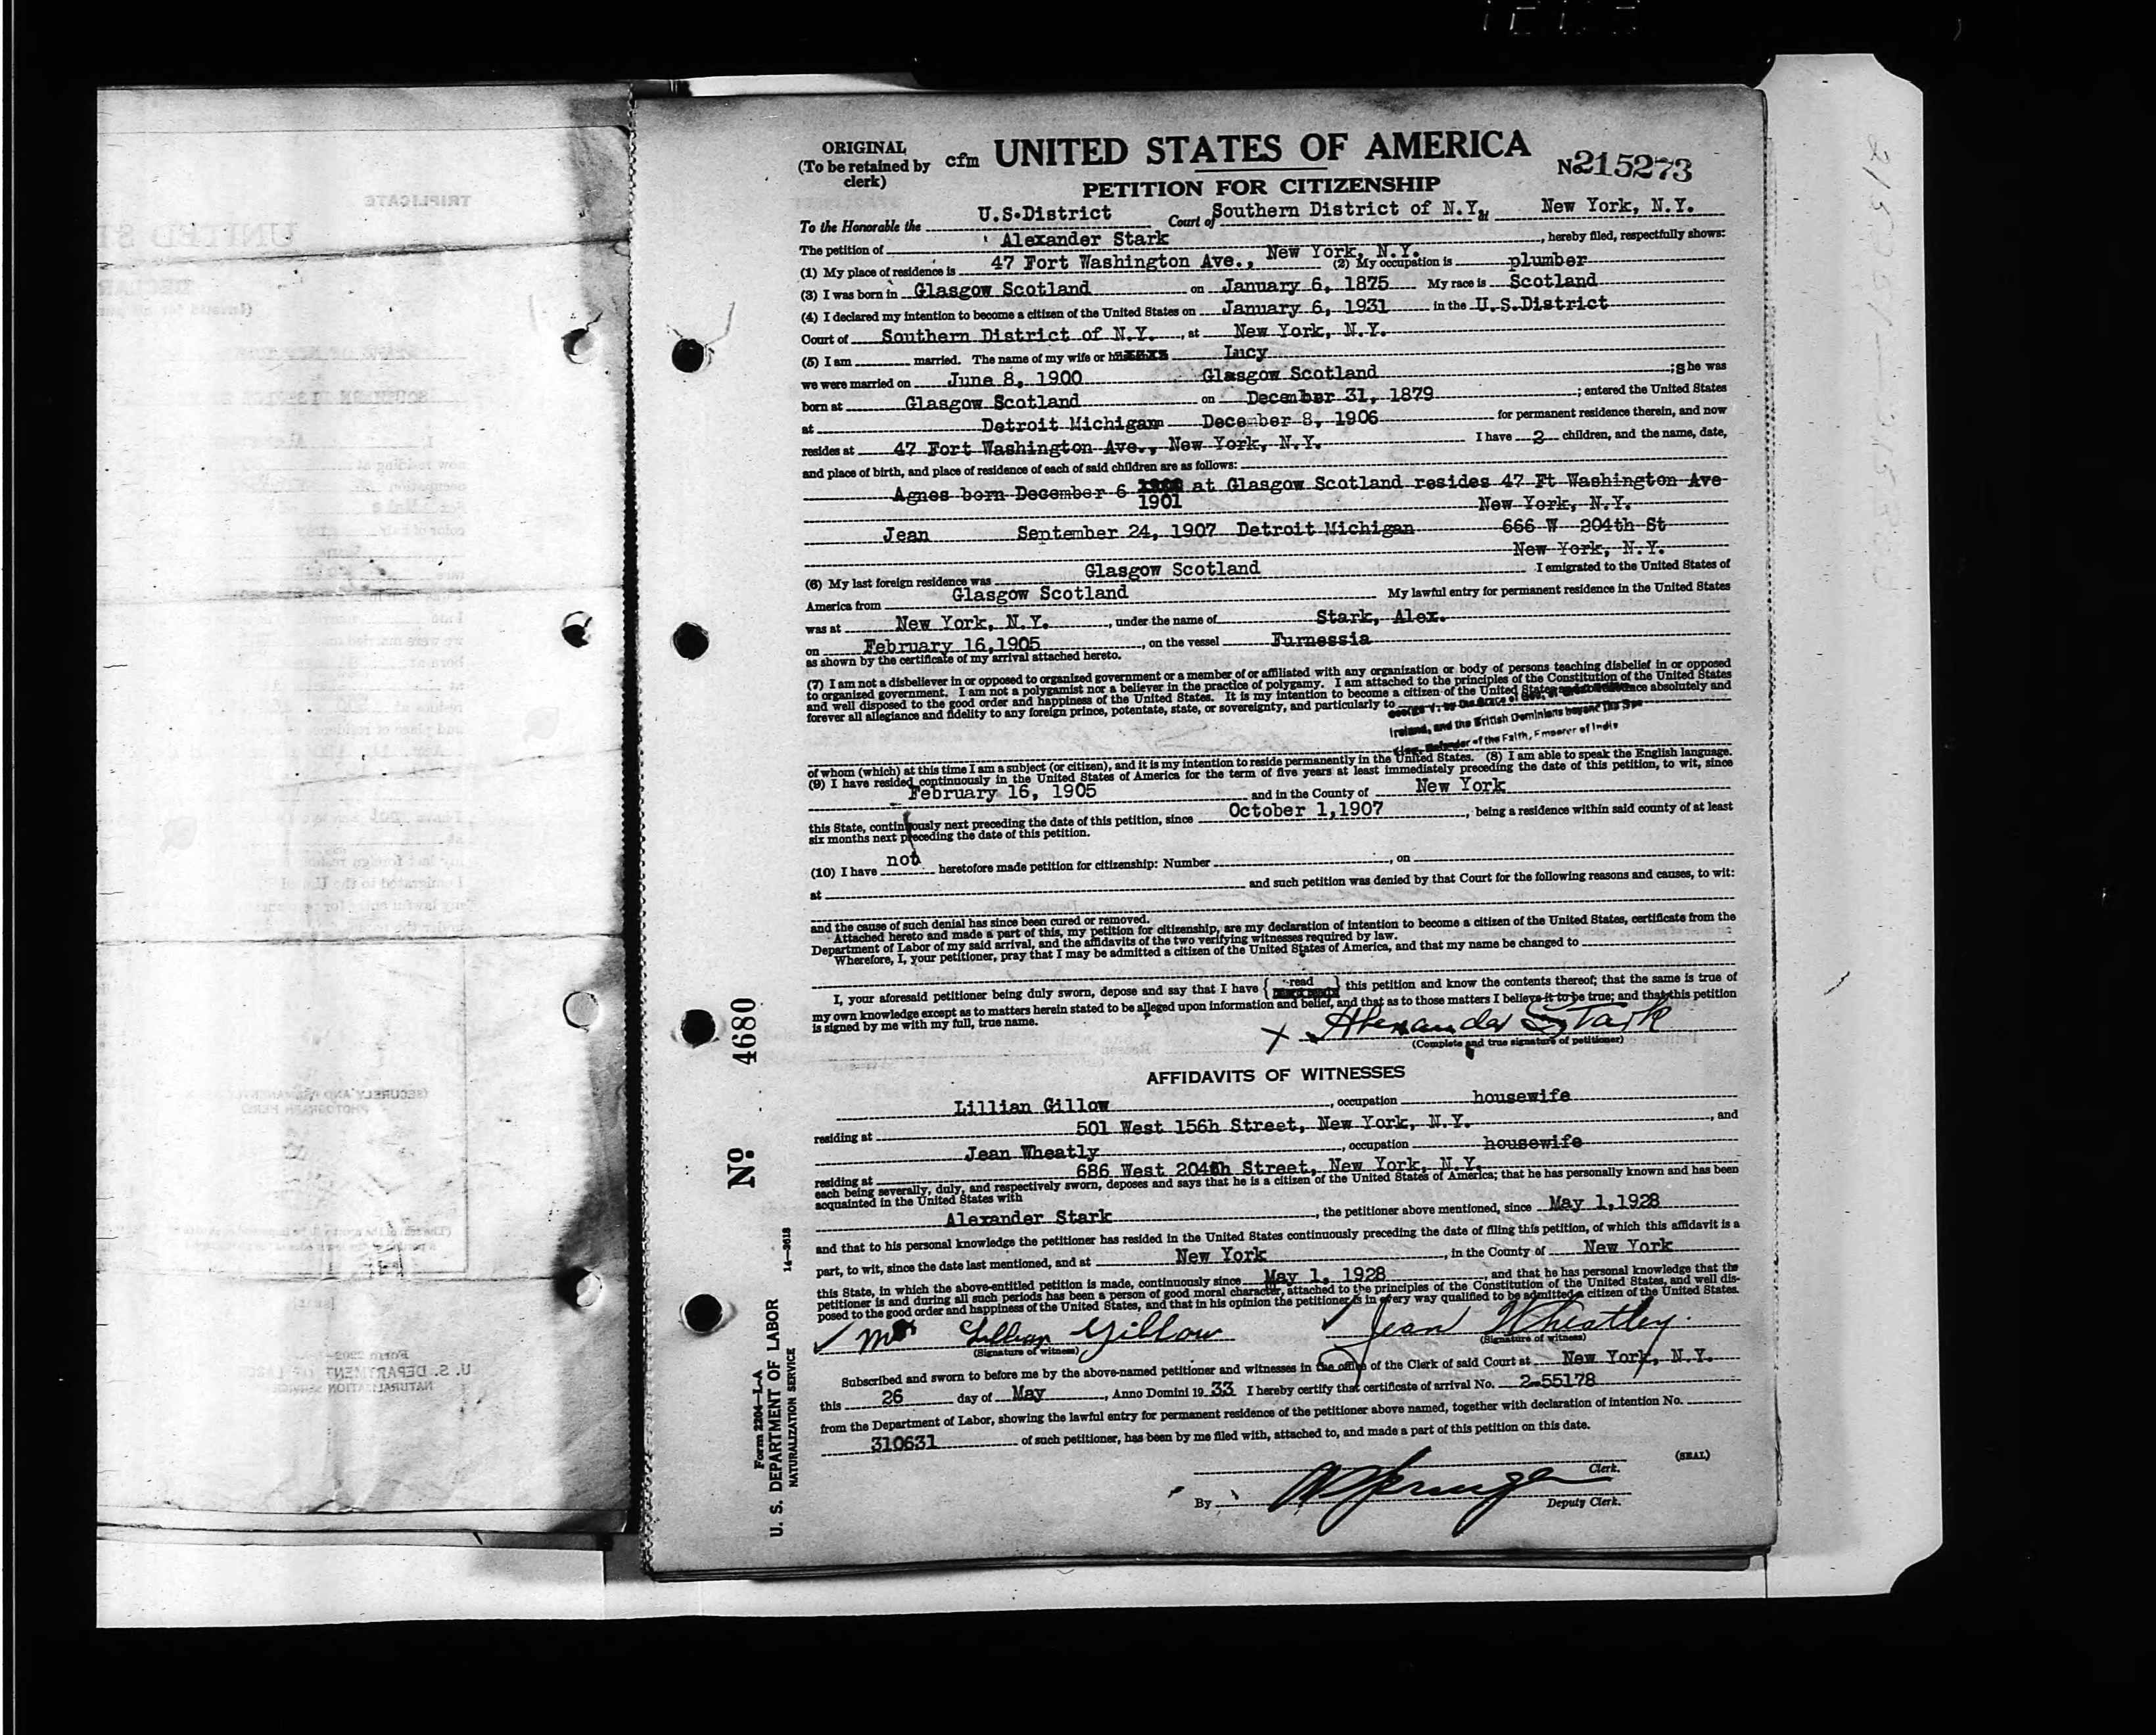 ORIGINAL
(To be retained by
clerk)
cfm UNITED STATES OF AMERICA
No. 215273
PETITION FOR CITIZENSHIP
To the Honorable the U.S.District Court of Southern District of N.Y. at New York, N.Y.
The petition of Alexander Stark, hereby filed, respectfully shows:
(1) My place of residence is 47 Fort Washington Ave., New York, N.Y. (2) My occupation is plumber
(3) I was born in Glasgow Scotland on January 6, 1875 My race is Scotland
(4) I declared my intention to become a citizen of the United States on January 6, 1931 in the U.S.District
Court of Southern District of N.Y., at New York, N.Y.
(5) I am married. The name of my wife or Lucy
we were married on June 8, 1900 Glasgow Scotland ; she was
born at Glasgow Scotland on December 31, 1879 ; entered the United States
at Detroit Michigan December 8, 1906 for permanent residence therein, and now
resides at 47 Fort Washington Ave., New York, N.Y. I have 2 children, and the name, date,
and place of birth, and place of residence of each of said children are as follows:
Agnes born December 6 at Glasgow Scotland resides 47 Ft Washington Ave
1901 New York, N.Y.
Jean September 24, 1907 Detroit Michigan 666 W 204th St
New York, N.Y.
(6) My last foreign residence was Glasgow Scotland I emigrated to the United States of
America from Glasgow Scotland My lawful entry for permanent residence in the United States
was at New York, N.Y., under the name of Stark, Alex.
on February 16,1905, on the vessel Furnessia
as shown by the certificate of my arrival attached hereto.
(7) I am not a disbeliever in or opposed to organized government or a member of or affiliated with any organization or body of persons teaching disbelief in or opposed
to organized government. I am not a polygamist nor a believer in the practice of polygamy. I am attached to the principles of the Constitution of the United States
and well disposed to the good order and happiness of the United States. It is my intention to become a citizen of the United States absolutely and
forever all allegiance and fidelity to any foreign prince, potentate, state, or sovereignty, and particularly to George V. by the Grace of God, of
Ireland, and the British Dominions beyond the Sea
King, Defender of the Faith, Emperor of India
of whom (which) at this time I am a subject (or citizen), and it is my intention to reside permanently in the United States. (8) I am able to speak the English language.
(9) I have resided continuously in the United States of America for the term of five years at least immediately preceding the date of this petition, to wit, since
February 16, 1905 and in the County of New York
this State, continuously next preceding the date of this petition, since October 1,1907, being a residence within said county of at least
six months next preceding the date of this petition.
(10) I have not heretofore made petition for citizenship: Number , on
at and such petition was denied by that Court for the following reasons and causes, to wit:
and the cause of such denial has since been cured or removed.
Attached hereto and made a part of this, my petition for citizenship, are my declaration of intention to become a citizen of the United States, certificate from the
Department of Labor of my said arrival, and the affidavits of the two verifying witnesses required by law.
Wherefore, I, your petitioner, pray that I may be admitted a citizen of the United States of America, and that my name be changed to
I, your aforesaid petitioner being duly sworn, depose and say that I have { read } this petition and know the contents thereof; that the same is true of
my own knowledge except as to matters herein stated to be alleged upon information and belief, and that as to those matters I believe it to be true; and that this petition
is signed by me with my full, true name.
X Alexander Stark
(Complete and true signature of petitioner)
AFFIDAVITS OF WITNESSES
Lillian Gillow, occupation housewife
residing at 501 West 156h Street, New York, N.Y., and
Jean Wheatly, occupation housewife
residing at 686 West 204th Street, New York, N.Y.
each being severally, duly, and respectively sworn, deposes and says that he is a citizen of the United States of America; that he has personally known and has been
acquainted in the United States with
Alexander Stark, the petitioner above mentioned, since May 1,1928
and that to his personal knowledge the petitioner has resided in the United States continuously preceding the date of filing this petition, of which this affidavit is a
part, to wit, since the date last mentioned, and at New York, in the County of New York
this State, in which the above-entitled petition is made, continuously since May 1, 1928, and that he has personal knowledge that the
petitioner is and during all such periods has been a person of good moral character, attached to the principles of the Constitution of the United States, and well dis-
posed to the good order and happiness of the United States, and that in his opinion the petitioner is in every way qualified to be admitted a citizen of the United States.
Mrs Lillian Gillow Jean Wheatley.
(Signature of witness) (Signature of witness)
Subscribed and sworn to before me by the above-named petitioner and witnesses in the office of the Clerk of said Court at New York, N.Y.
this 26 day of May, Anno Domini 1933 I hereby certify that certificate of arrival No. 2-55178
from the Department of Labor, showing the lawful entry for permanent residence of the petitioner above named, together with declaration of intention No.
310631 of such petitioner, has been by me filed with, attached to, and made a part of this petition on this date.
(SEAL)
Clerk.
By
Deputy Clerk.
No. 4680
14—2618
Form 2204—L-A
U. S. DEPARTMENT OF LABOR
NATURALIZATION SERVICE
TRIPLICATE